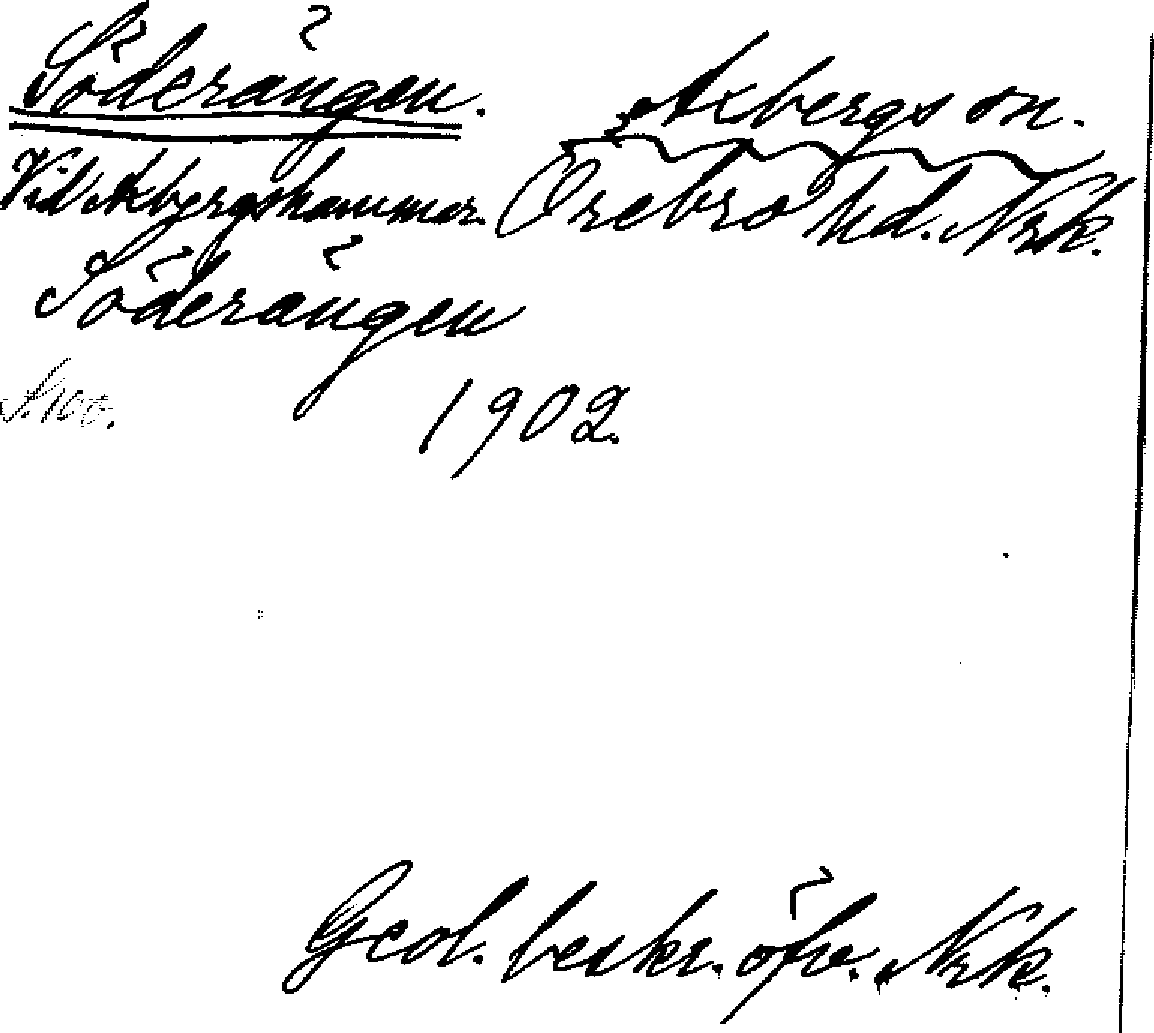 Söderängen. Axbergs sn.
Vid Axbergshammar. Örebro hd. Nrk.
Söderängen
S. 100.
1902.
Geol. beskr. öfv. Nrk.